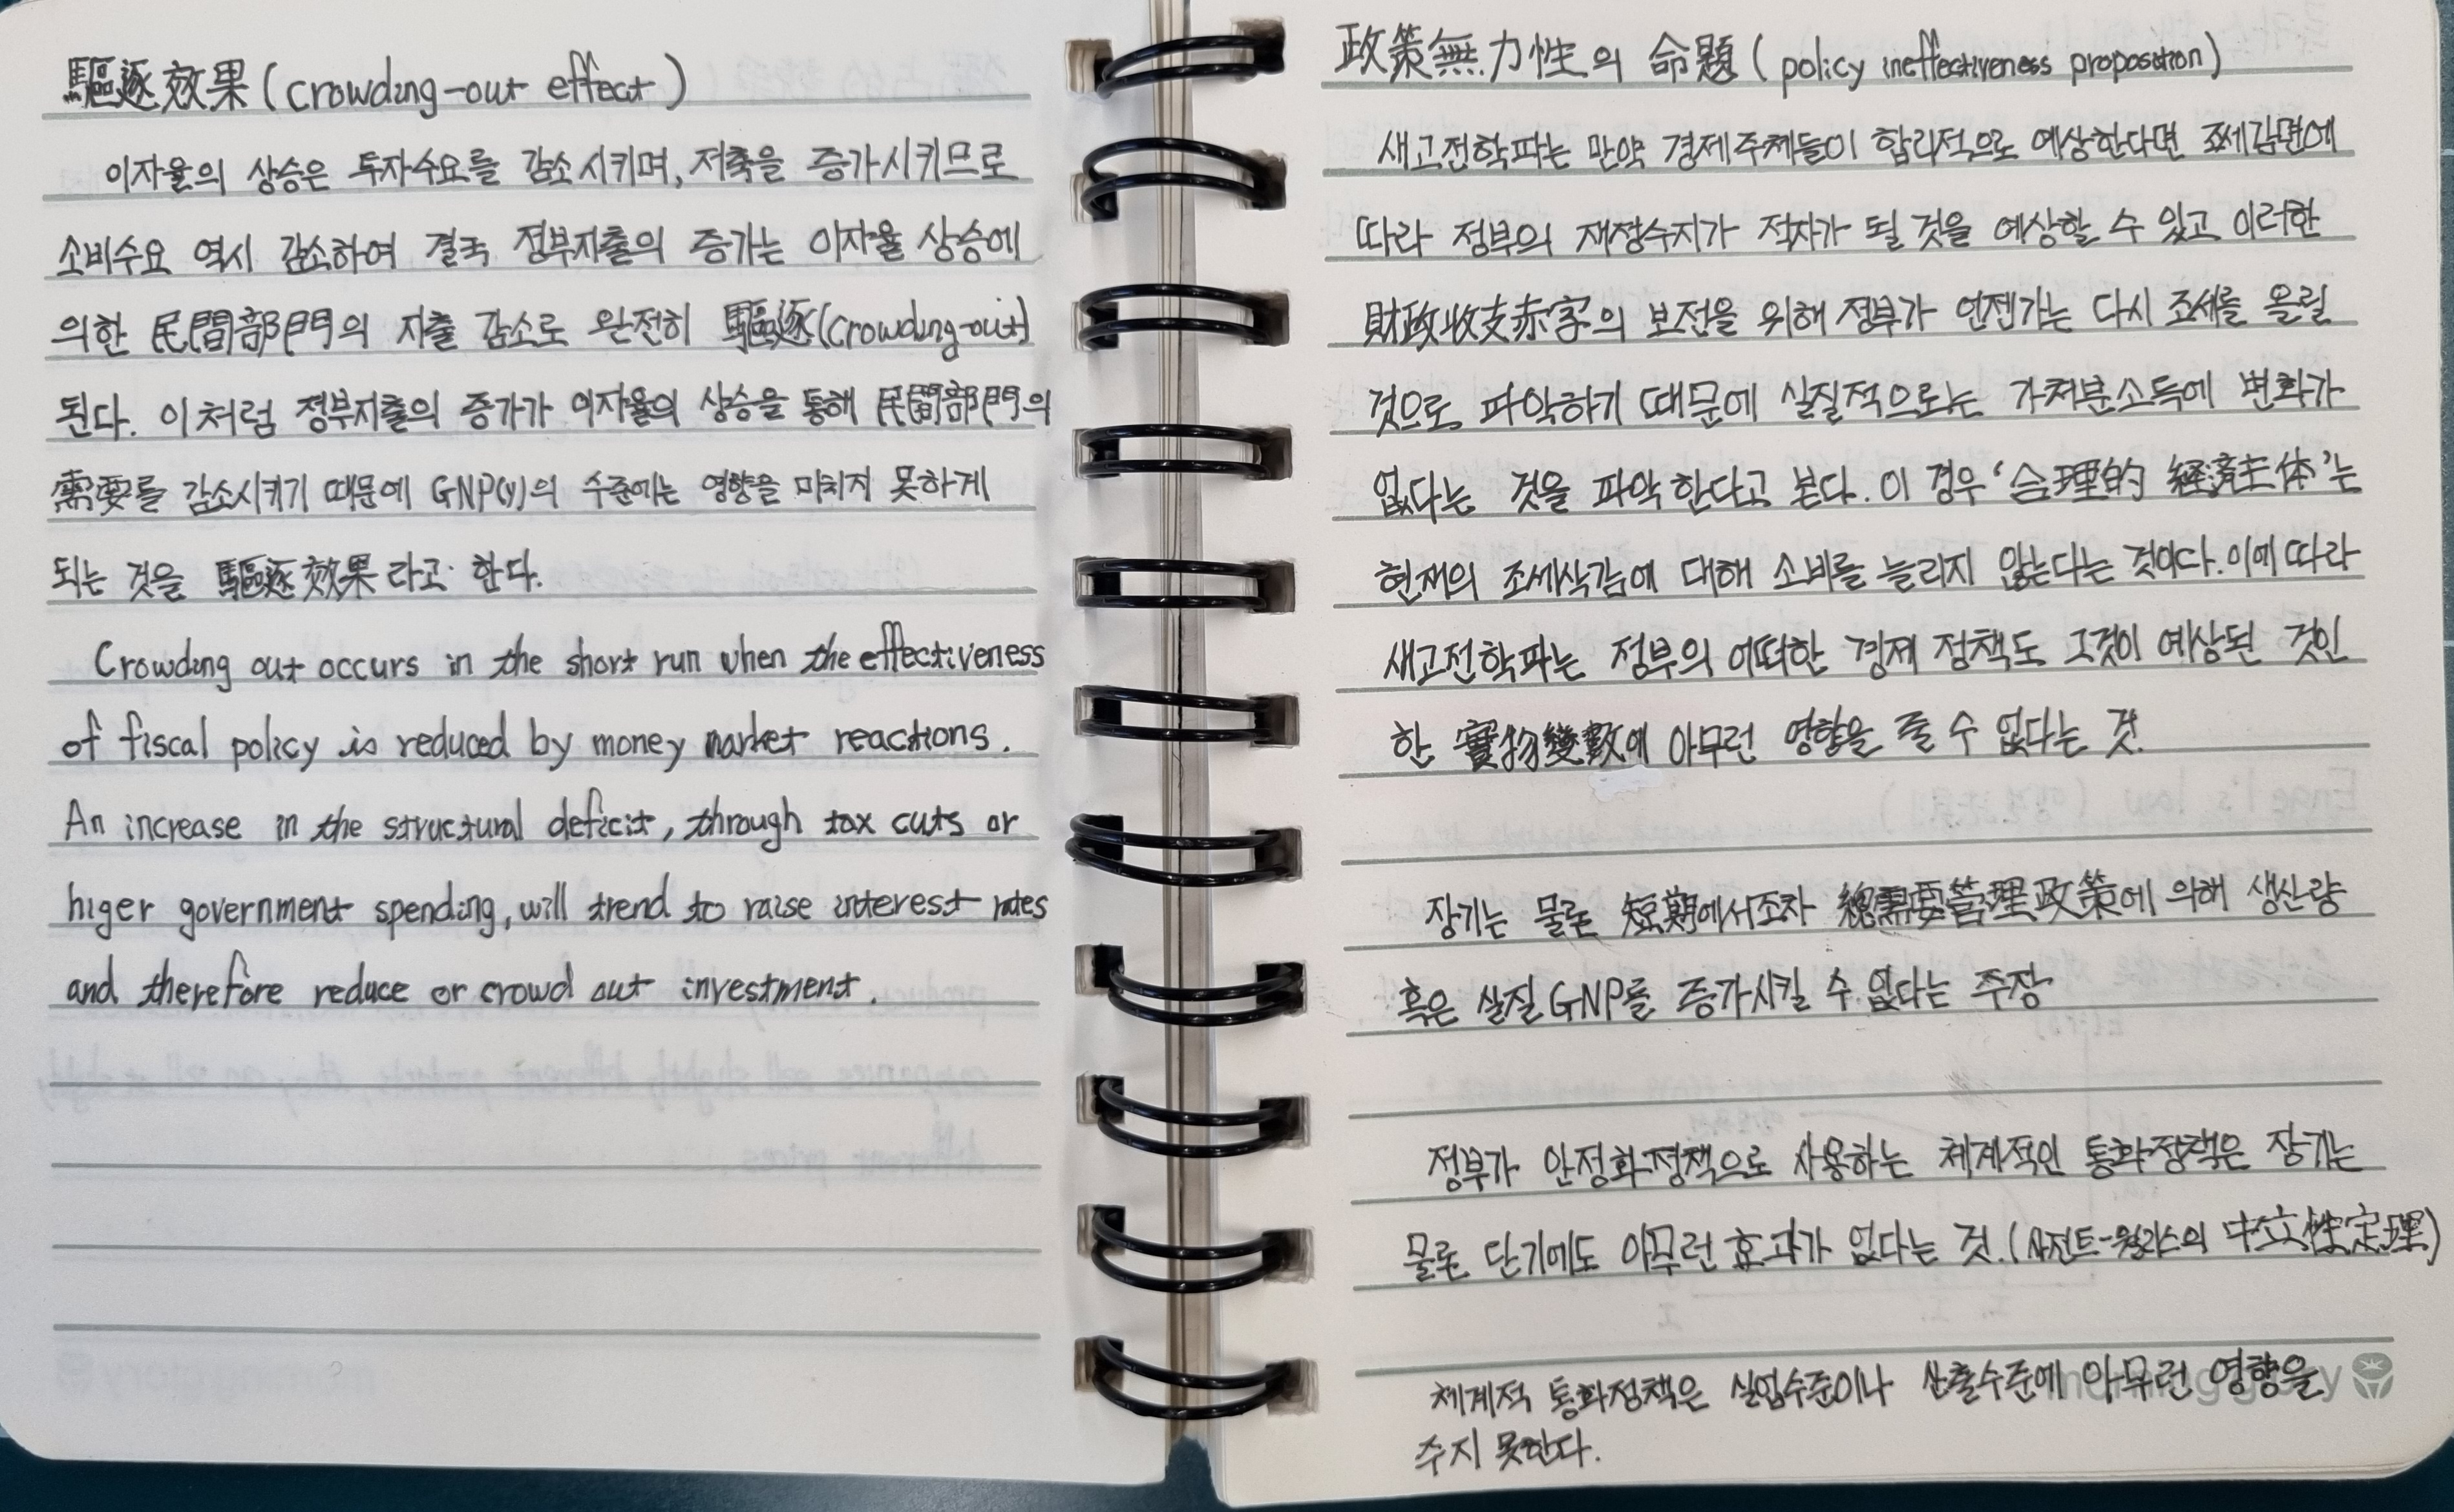 驅逐效果(crowding-out effect)
이자율의 상승은 투자수요를 감소시키며, 저축을 증가시키므로
소비수요 역시 감소하여 결국 정부지출의 증가는 이자율 상승에
의한 民間部門의 지출 감소로 완전히 驅逐(crowding-out)
된다. 이처럼 정부지출의 증가가 이자율의 상승을 통해 民間部門의
需要를 감소시키기 때문에 GNP(y)의 수준에는 영향을 미치지 못하게
되는 것을 驅逐效果라고 한다.
Crowding out occurs in the short run when the effectiveness
of fiscal policy is reduced by money market reactions.
An increase in the structural deficit, through tax cuts or
higer government spending, will trend to raise interest rates
and therefore reduce or crowd out investment.
政策無力性의 命題(policy ineffectiveness proposition)
새고전학파는 만약 경제주체들이 합리적으로 예상한다면 조세감면에
따라 정부의 재정수지가 적자가 될 것을 예상할 수 있고 이러한
財政收支赤字의 보전을 위해 정부가 언젠가는 다시 조세를 올릴
것으로 파악하기 때문에 실질적으로는 가처분소득에 변화가
없다는 것을 파악한다고 본다. 이 경우 '合理的 経済主体'는
현재의 조세삭감에 대해 소비를 늘리지 않는다는 것이다. 이에 따라
새고전학파는 정부의 어떠한 경제 정책도 그것이 예상된 것인
한 實物變數에 아무런 영향을 줄 수 없다는 것.
장기는 물론 短期에서조차 總需要管理政策에 의해 생산량
혹은 실질GNP를 증가시킬 수 없다는 주장
정부가 안정화정책으로 사용하는 체계적인 통화정책은 장기는
물론 단기에도 아무런 효과가 없다는 것.(사전트-월리스의 中立性定理)
체계적 통화정책은 실업수준이나 산출수준에 아무런 영향을
주지 못한다.
morning glory